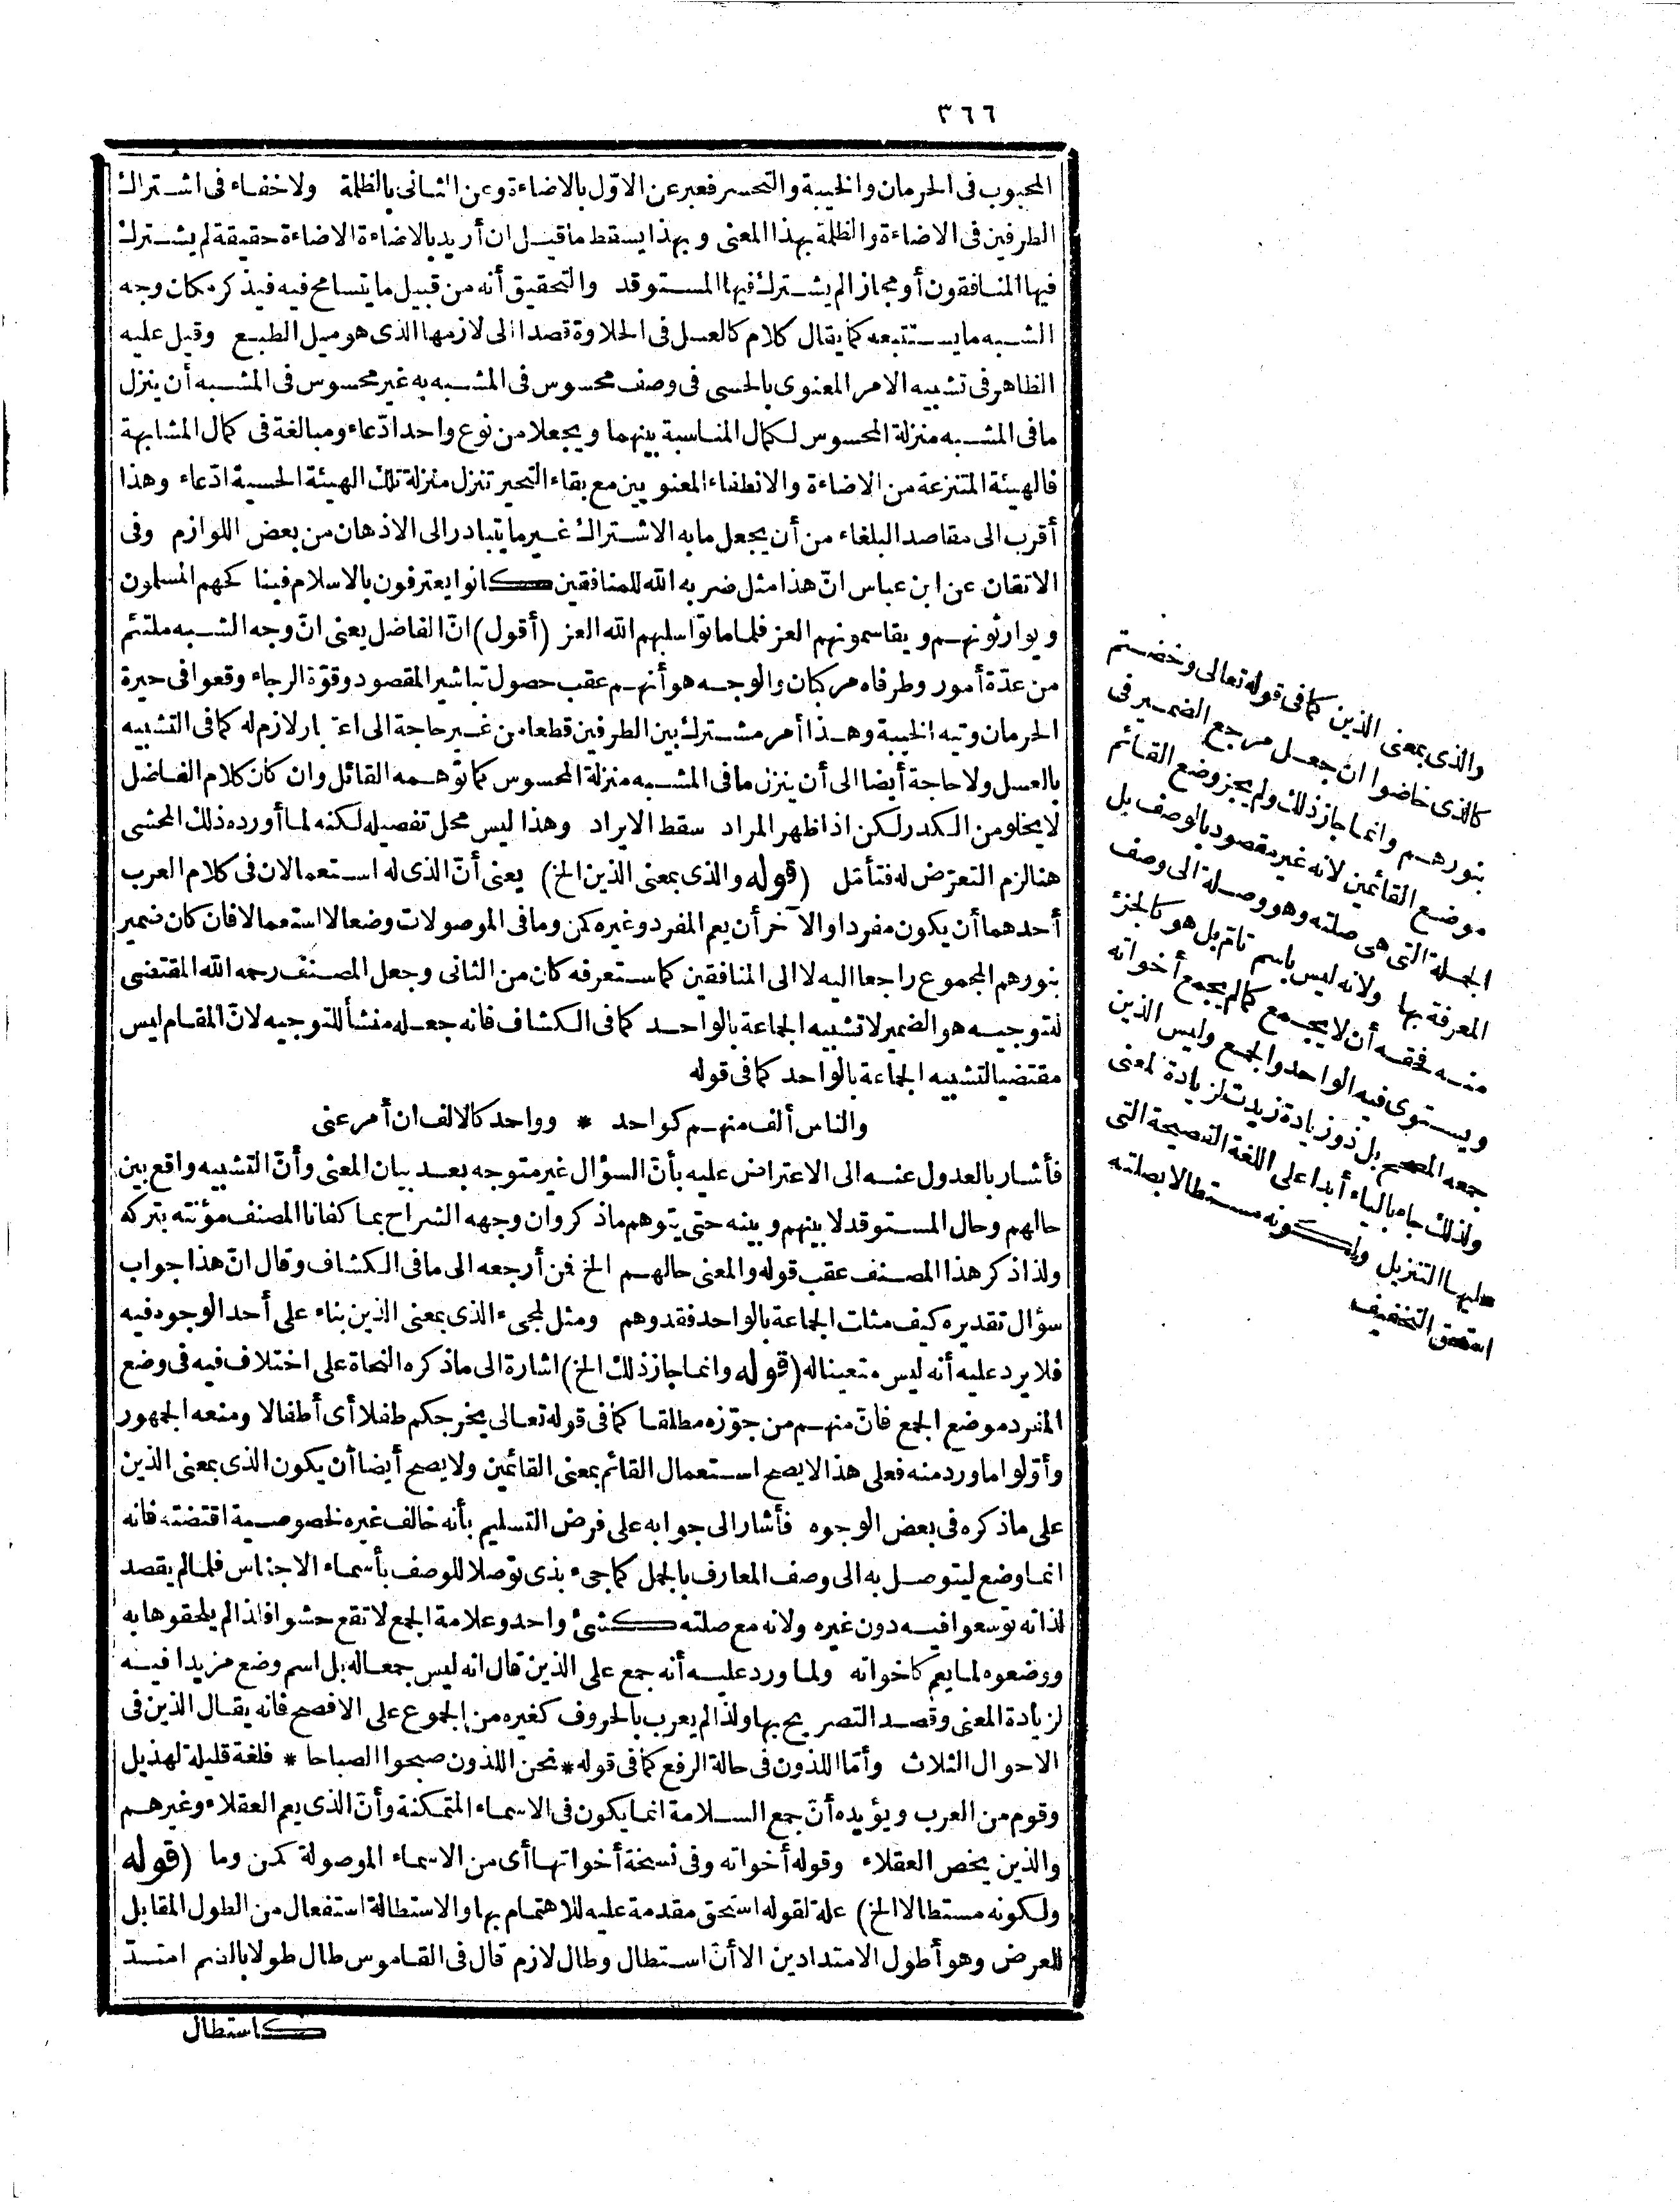 ٣٦٦
المحبوب فى الحرمان والخيبة والتحسر فعبر عن الاوّل بالاضاءة وعن الثانى بالظلمة ولا خفاء فى اشتراك
الطرفين فى الاضاءة والظلمة بهذا المعنى وبهذا يسقط ما قيل ان أريد بالاضاءة الاضاءة حقيقة لم يشترك
فيها المنافقون أو مجازا لم يشترك فيها المستوقد والتحقيق أنه من قبيل ما يتسامح فيه فيذكر مكان وجه
الشبه ما يستتبعه كما يقال كلام كالعسل فى الحلاوة قصدا الى لازمها الذى هو ميل الطبع وقيل عليه
الظاهر فى تشبيه الامر المعنوى بالحسى فى وصف محسوس فى المشبه به غير محسوس فى المشبه أن ينزل
ما فى المشبه منزلة المحسوس لكمال المناسبة بينهما ويجعلا من نوع واحد ادّعاء ومبالغة فى كمال المشابهة
فالهيئة المنتزعة من الاضاءة والانطفاء المعنويين مع بقاء التحير تنزل منزلة تلك الهيئة الحسية ادّعاء وهذا
أقرب الى مقاصد البلغاء من أن يجعل ما به الاشتراك غير ما يتبادر الى الاذهان من بعض اللوازم وفى
الاتقان عن ابن عباس انّ هذا مثل ضربه الله للمنافقين كانوا يعترفون بالاسلام فينا كحهم المسلمون
ويوارثونهم ويقاسمونهم العز فلما ماتوا سلبهم الله العز (أقول) انّ الفاضل يعنى انّ وجه الشبه ملتئم
من عدّة أمور وطرفاه مركبان والوجه هو أنهم عقب حصول تباشير المقصود وقوّة الرجاء وقعوا فى حيرة
الحرمان وتيه الخيبة وهذا أمر مشترك بين الطرفين قطعا من غير حاجة الى اعتبار لازم له كما فى التشبيه
بالعسل ولا حاجة أيضا الى أن ينزل ما فى المشبه منزلة المحسوس كما توهمه القائل وان كان كلام الفاضل
لا يخلو من الكدر لكن اذا ظهر المراد سقط الايراد وهذا ليس محل تفصيله لكنه لما أورده ذلك المحشى
هنا لزم التعرّض له فتأمّل (قوله والذى بمعنى الذين الخ) يعنى أنّ الذى له استعمالان فى كلام العرب
أحدهما أن يكون مفردا والآخر أن يعم المفرد وغيره كمن وما فى الموصولات وضعا لا استعمالا فان كان ضمير
بنورهم المجموع راجعا اليه لا الى المنافقين كما ستعرفه كان من الثانى وجعل المصنف رحمه الله المقتضى
لتوجيه هو الضمير لا تشبيه الجماعة بالواحد كما فى الكشاف فانه جعله منشأ للتوجيه لانّ المقام ليس
مقتضيا لتشبيه الجماعة بالواحد كما فى قوله
والناس ألف منهم كواحد * وواحد كالالف ان أمر عنى
فأشار بالعدول عنه الى الاعتراض عليه بأنّ السؤال غير متوجه بعد بيان المعنى وأنّ التشبيه واقع بين
حالهم وحال المستوقد لا بينهم وبينه حتى يتوهم ما ذكر وان وجهه الشراح بما كفانا المصنف مؤنته بتركه
ولذا ذكر هذا المصنف عقب قوله والمعنى حالهم الخ فمن أرجعه الى ما فى الكشاف وقال انّ هذا جواب
سؤال تقديره كيف مثلت الجماعة بالواحد فقد وهم ومثل لمجىء الذى بمعنى الذين بناء على أحد الوجوه فيه
فلا يرد عليه أنه ليس متعينا له (قوله وانما جاز ذلك الخ) اشارة الى ما ذكره النحاة على اختلاف فيه فى وضع
المفرد موضع الجمع فانّ منهم من جوّزه مطلقا كما فى قوله تعالى يخرجكم طفلا أى أطفالا ومنعه الجمهور
وأوّلوا ما ورد منه فعلى هذا لا يصح استعمال القائم بمعنى القائمين ولا يصح أيضا أن يكون الذى بمعنى الذين
على ما ذكره فى بعض الوجوه فأشار الى جوابه على فرض التسليم بأنه خالف غيره لخصوصية اقتضته فانه
انما وضع ليتوصل به الى وصف المعارف بالجمل كما جىء بذى توصلا للوصف بأسماء الاجناس فلما لم يقصد
لذاته توسعوا فيه دون غيره ولانه مع صلته كشئ واحد وعلامة الجمع لا تقع حشوا فلذا لم يلحقوها به
ووضعوه لما يعم كأخواته ولما ورد عليه أنه جمع على الذين قال انه ليس جمعا له بل اسم وضع مزيدا فيه
لزيادة المعنى وقصد التصريح بها ولذا لم يعرب بالحروف كغيره من الجموع على الافصح فانه يقال الذين فى
الاحوال الثلاث وأمّا اللذون فى حالة الرفع كما فى قوله * نحن اللذون صبحوا الصباحا * فلغة قليلة لهذيل
وقوم من العرب ويؤيده أنّ جمع السلامة انما يكون فى الاسماء المتمكنة وأنّ الذى يعم العقلاء وغيرهم
والذين يخص العقلاء وقوله أخواته وفى نسخة أخواتها أى من الاسماء الموصولة كمن وما (قوله
ولكونه مستطالا الخ) علة لقوله استحق مقدمة عليه للاهتمام بها والاستطالة استفعال من الطول المقابل
للعرض وهو أطول الامتدادين الا أنّ استطال وطال لازم قال فى القاموس طال طولا بالضم امتدّ
كاستطال
والذى بمعنى الذين كما فى قوله تعالى وخضتم
كالذى خاضوا ان جعل مرجع الضمير فى
بنورهم وانما جاز ذلك ولم يجز وضع القائم
موضع القائمين لانه غير مقصود بالوصف بل
الجملة التى هى صلته وهو وصلة الى وصف
المعرفة بها ولانه ليس باسم تامّ بل هو كالجزء
منه فحقه أن لا يجمع كما لم يجمع أخواته
ويستوى فيه الواحد والجمع وليس الذين
جمعه المصحح بل ذو زيادة زيدت لزيادة المعنى
ولذلك جاء بالياء أبدا على اللغة الفصيحة التى
عليها التنزيل ولكونه مستطالا بصلته
استحق التخفيف